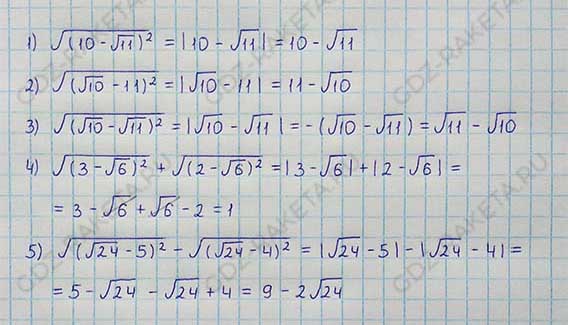 1) √(10-√11)² = |10-√11| = 10-√11
2) √(√10-11)² = |√10-11| = 11-√10
3) √(√10-√11)² = |√10-√11| = -(√10-√11) = √11-√10
4) √(3-√6)² + √(2-√6)² = |3-√6| + |2-√6| =
= 3-√6+√6-2 = 1
5) √(√24-5)² - √(√24-4)² = |√24-5| - |√24-4| =
= 5-√24 -√24+4 = 9-2√24
GDZ-RAKETA.RU